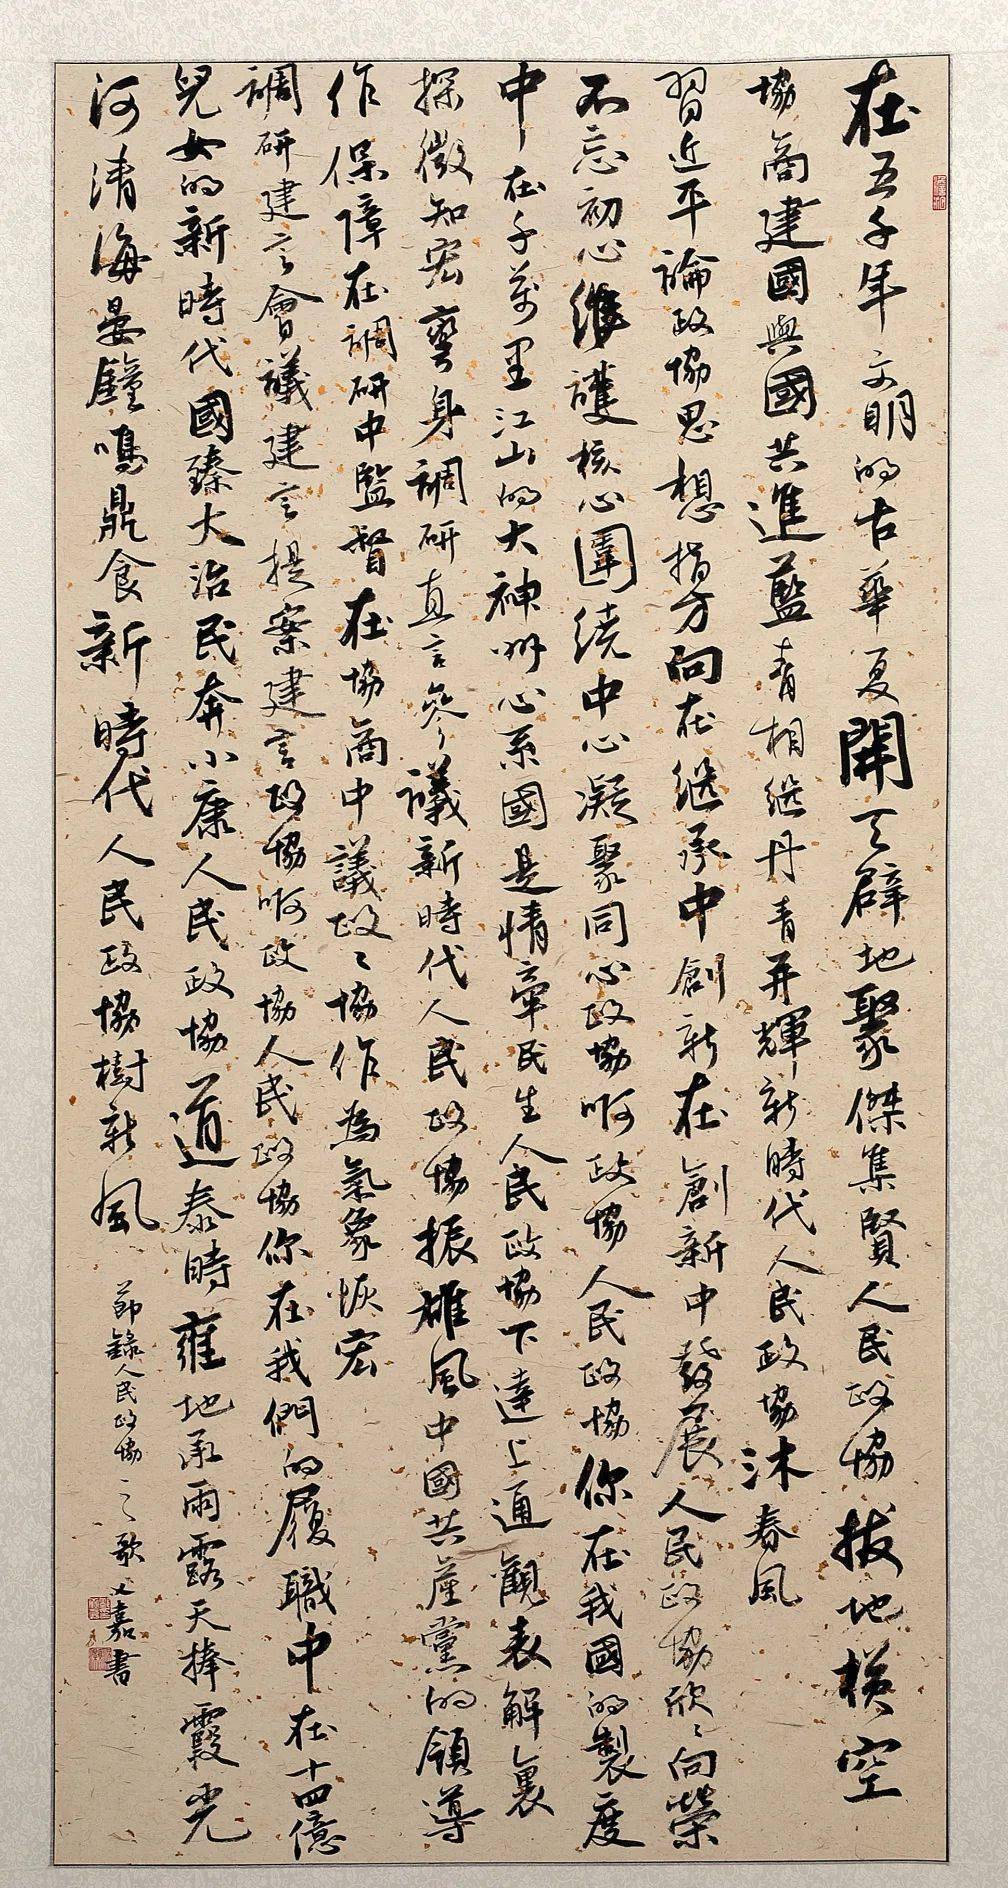 在五千年文明的古華夏開天辟地聚傑集賢人民政協拔地橫空
協商建國與國共進藍青相继丹青并輝新時代人民政協沐春風
習近平論政協思想指方向在继承中創新在創新中發展人民政協欣欣向榮
不忘初心維護核心圍绕中心凝聚同心政協啊政協人民政協你在我國的製度
中在千萬里江山的大神州心系國是情牽民生人民政協下達上通觀表解裏
探微知宏 身調研直言參議新時代人民政協振雄風中國共產黨的領導
作保障在調研中監督在協商中議政政協作為氣象恢宏
調研建言會議建言提案建言政協啊政協人民政協你在我們的履職中在十四億
兒女的新時代國臻大治民奔小康人民政協道泰時雍地承雨露天捧霞光
河清海晏鐘鳴鼎食新時代人民政協樹新風
節錄人民政協之歌 嘉書